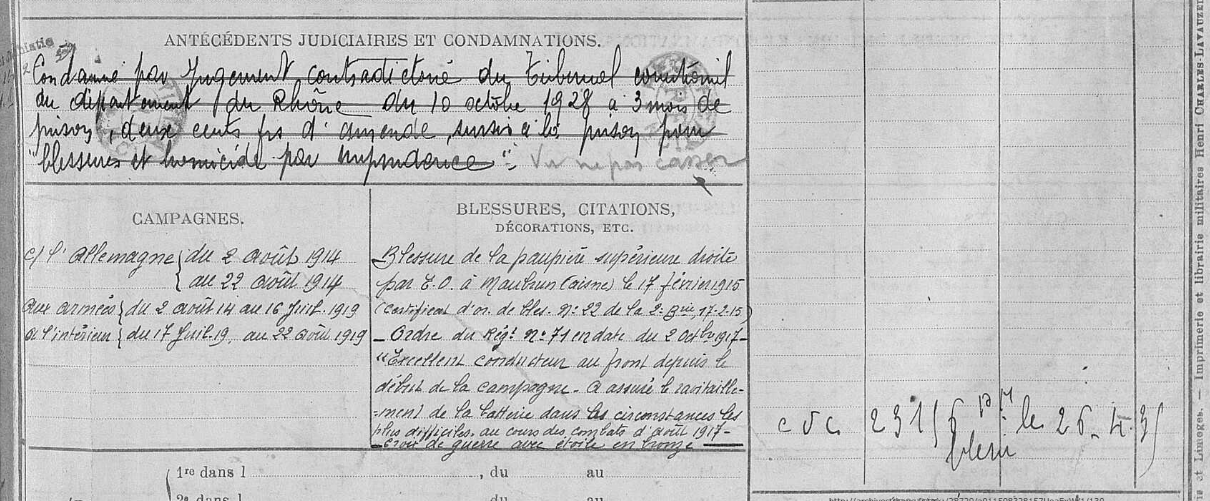 ANTÉCÉDENTS JUDICIAIRES ET CONDAMNATIONS.
Condamné par Jugement contradictoire du Tribunal
du département du Rhône du 10 octobre 1928 à 3 mois de
prison, deux cents frs d'amende, sursis à la prison pour
"blessures et homicide par imprudence"
Vu ne pas casser
CAMPAGNES.
c/ l'Allemagne { du 2 Août 1914
au 22 août 1914
aux armées { du 2 août 14 au 16 Juil. 1919
à l'intérieur { du 17 Juil. 19, au 22 Août 1919
BLESSURES, CITATIONS,
DÉCORATIONS, ETC.
Blessure de la paupière supérieure droite
par E.O. à (aisne) le 17 février 1915
(certificat d'or. de bles. N° 22 de la 2e Bie, 17-2-15)
- Ordre du Régt N° 71 en date du 2 Octbre 1917-
"Excellent conducteur au front depuis le
début de la campagne - a assuré le ravitaille-
-ment de la batterie dans les circonstances les
plus difficiles, au cours des combats d'Août 1917-
- Croix de guerre avec étoile en bronze -
1re dans l , du au
2e dans l , du au
c v c 231/6 le 26-4-3
et Limoges. — Imprimerie et librairie militaires Henri CHARLES-LAVAUZELLE